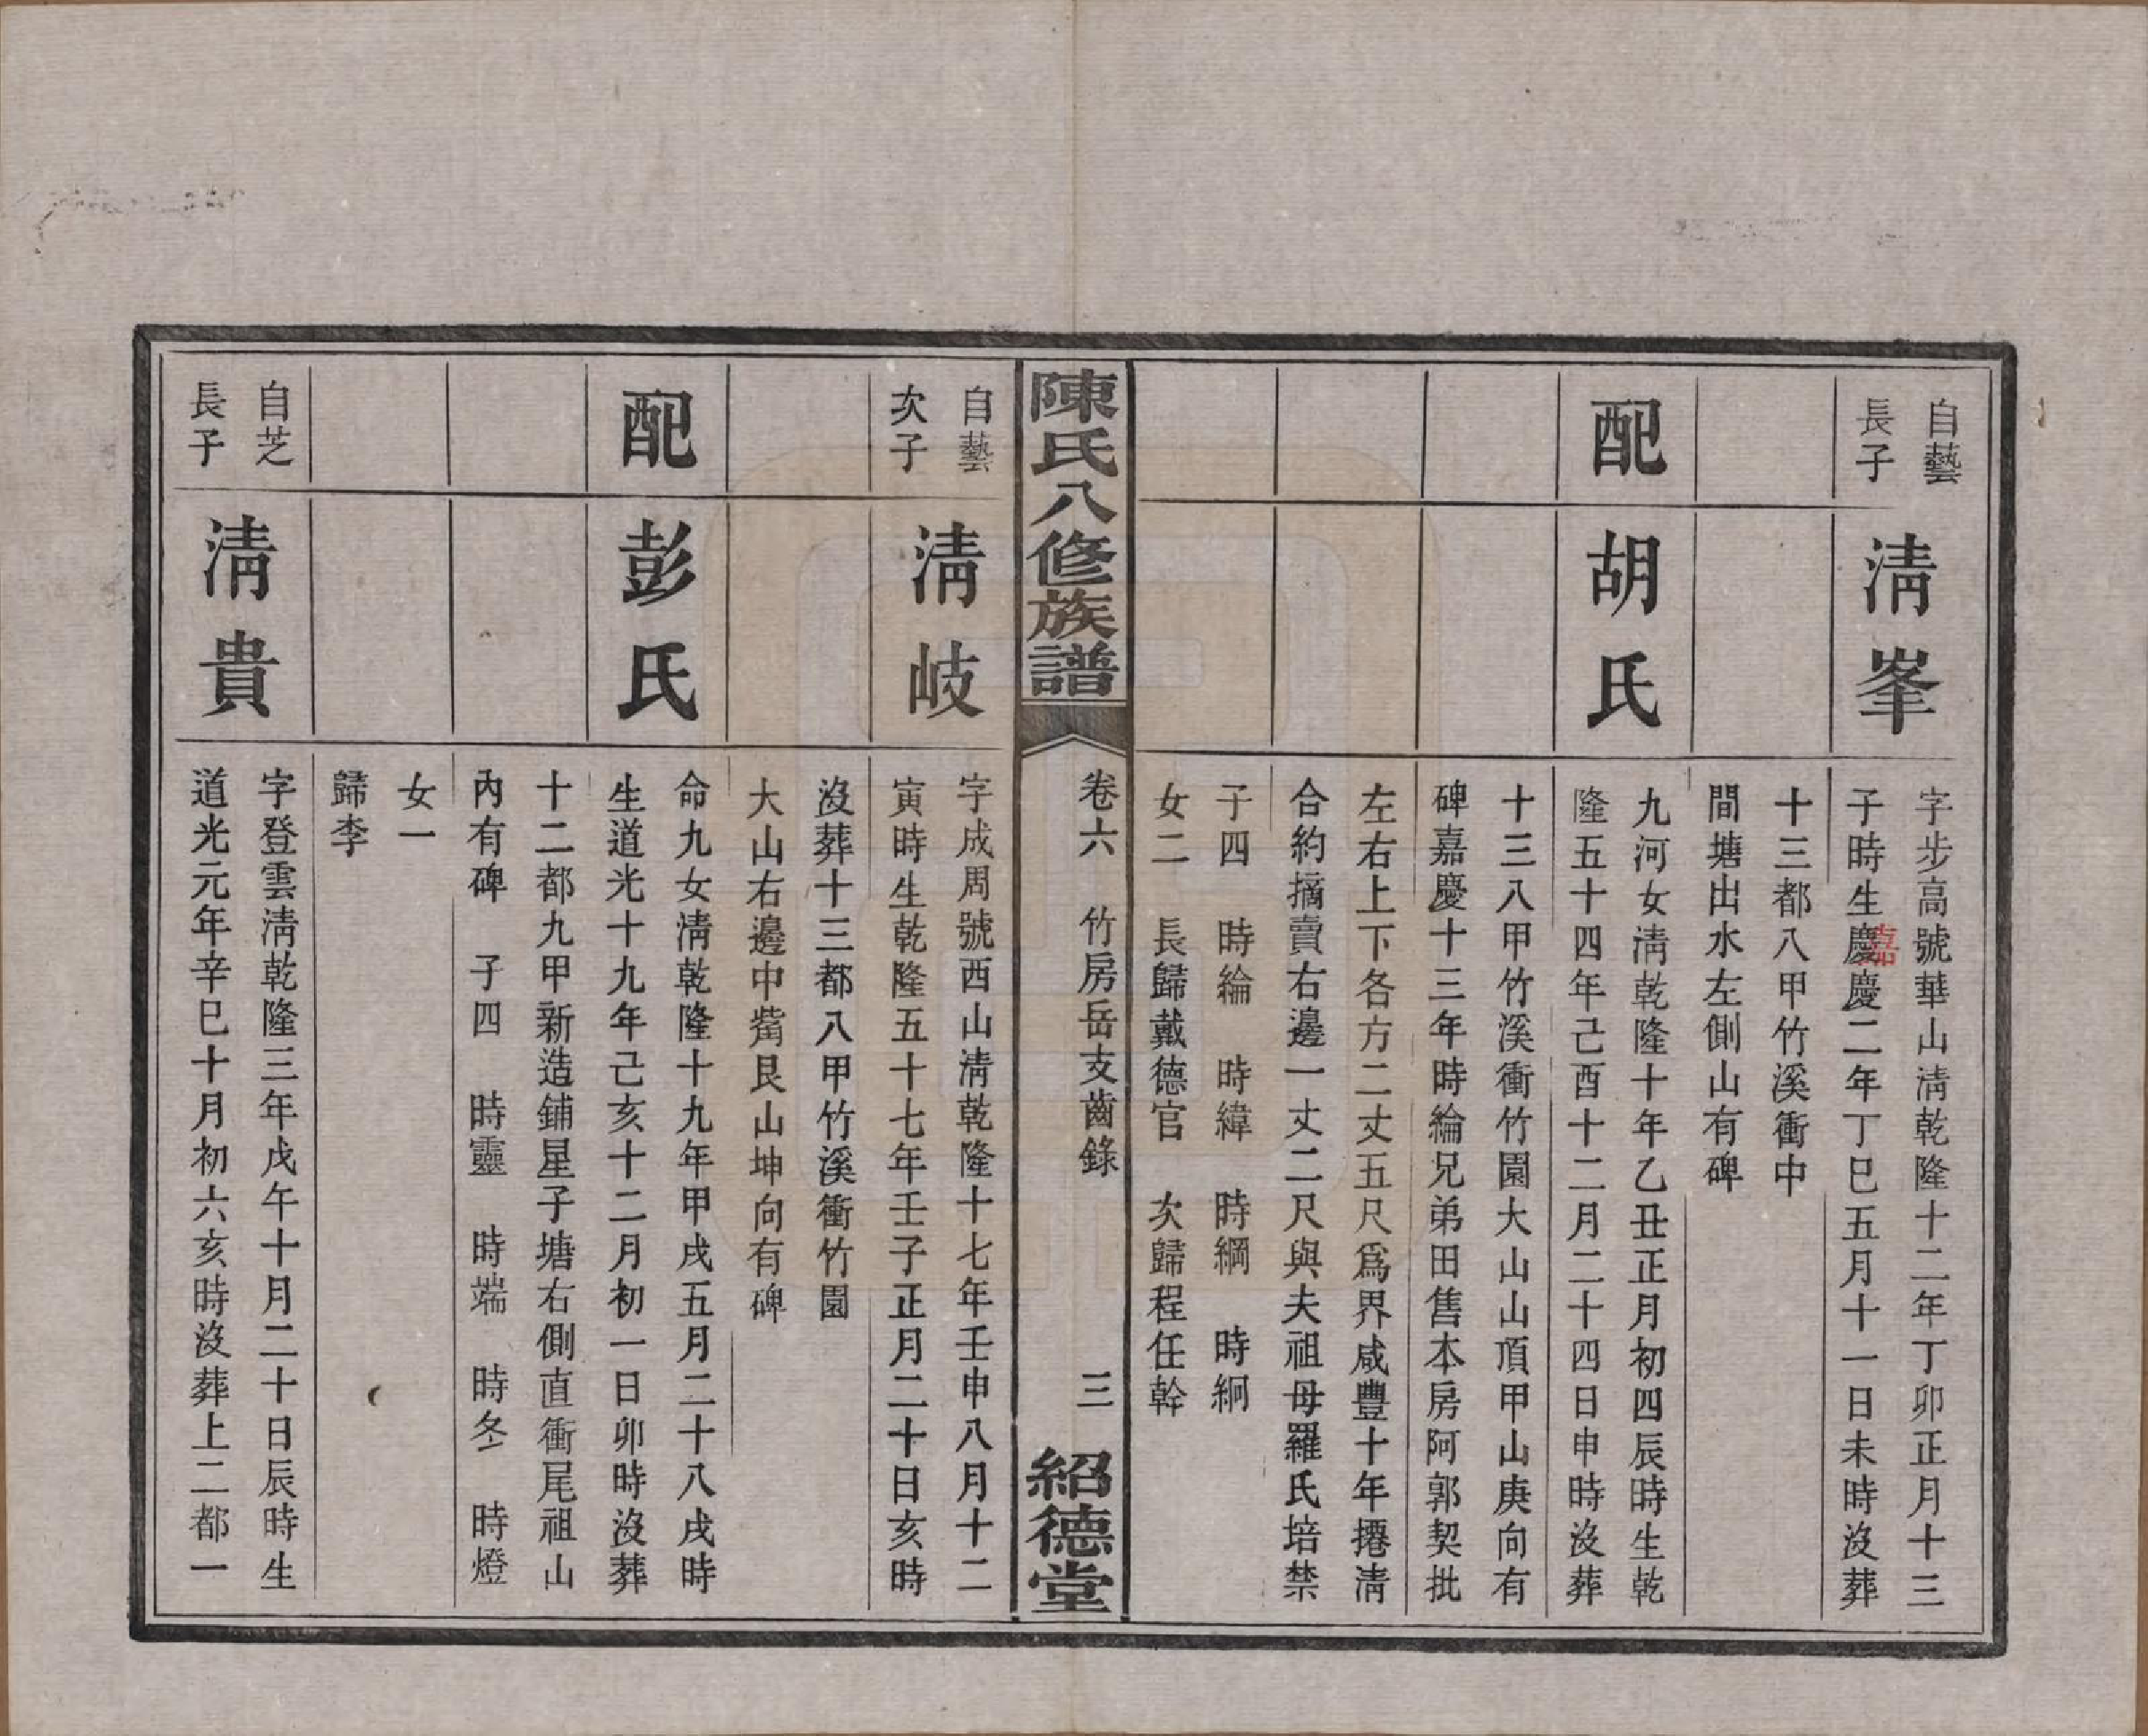 自藝
長子
清峯
字步高號華山清乾隆十二年丁卯正月十三
子時生慶慶二年丁巳五月十一日未時沒葬
嘉
十三都八甲竹溪衝中
間塘出水左側山有碑
配
胡氏
九河女清乾隆十年乙丑正月初四辰時生乾
隆五十四年己酉十二月二十四日申時沒葬
十三八甲竹溪衝竹園大山山頂甲山庚向有
碑嘉慶十三年時綸兄弟田售本房阿郭契批
左右上下各方二丈五尺爲界咸豐十年攇清
合約摘賣右邊一丈二尺與夫祖母羅氏培禁
子四　時綸　時緯　時綱　時絅
女二　長歸戴德官　次歸程任幹
陳氏八修族譜
卷六　竹房岳支齒錄
三
紹德堂
自藝
次子
清岐
字成周號西山清乾隆十七年壬申八月十二
寅時生乾隆五十七年壬子正月二十日亥時
沒葬十三都八甲竹溪衝竹園
大山右邊中嘴艮山坤向有碑
配
彭氏
命九女清乾隆十九年甲戌五月二十八戌時
生道光十九年己亥十二月初一日卯時沒葬
十二都九甲新造鋪星子塘右側直衝尾祖山
內有碑　子四　時靈　時端　時冬　時燈
女一
歸李
自芝
長子
清貴
字登雲清乾隆三年戊午十月二十日辰時生
道光元年辛巳十月初六亥時沒葬上二都一